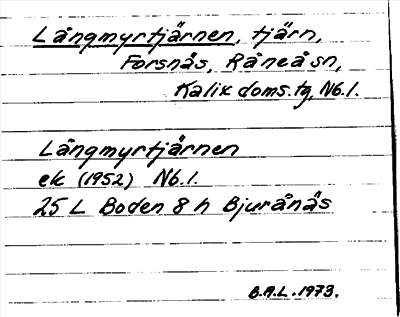 Långmyrtjärnen, tjärn,
Forsnås, Råneå sn,
Kalix doms.tg, Nb.l.
Långmyrtjärnen
ek (1952) Nb.l.
25 L Boden 8 h Bjurånäs
B.A.L. 1973.